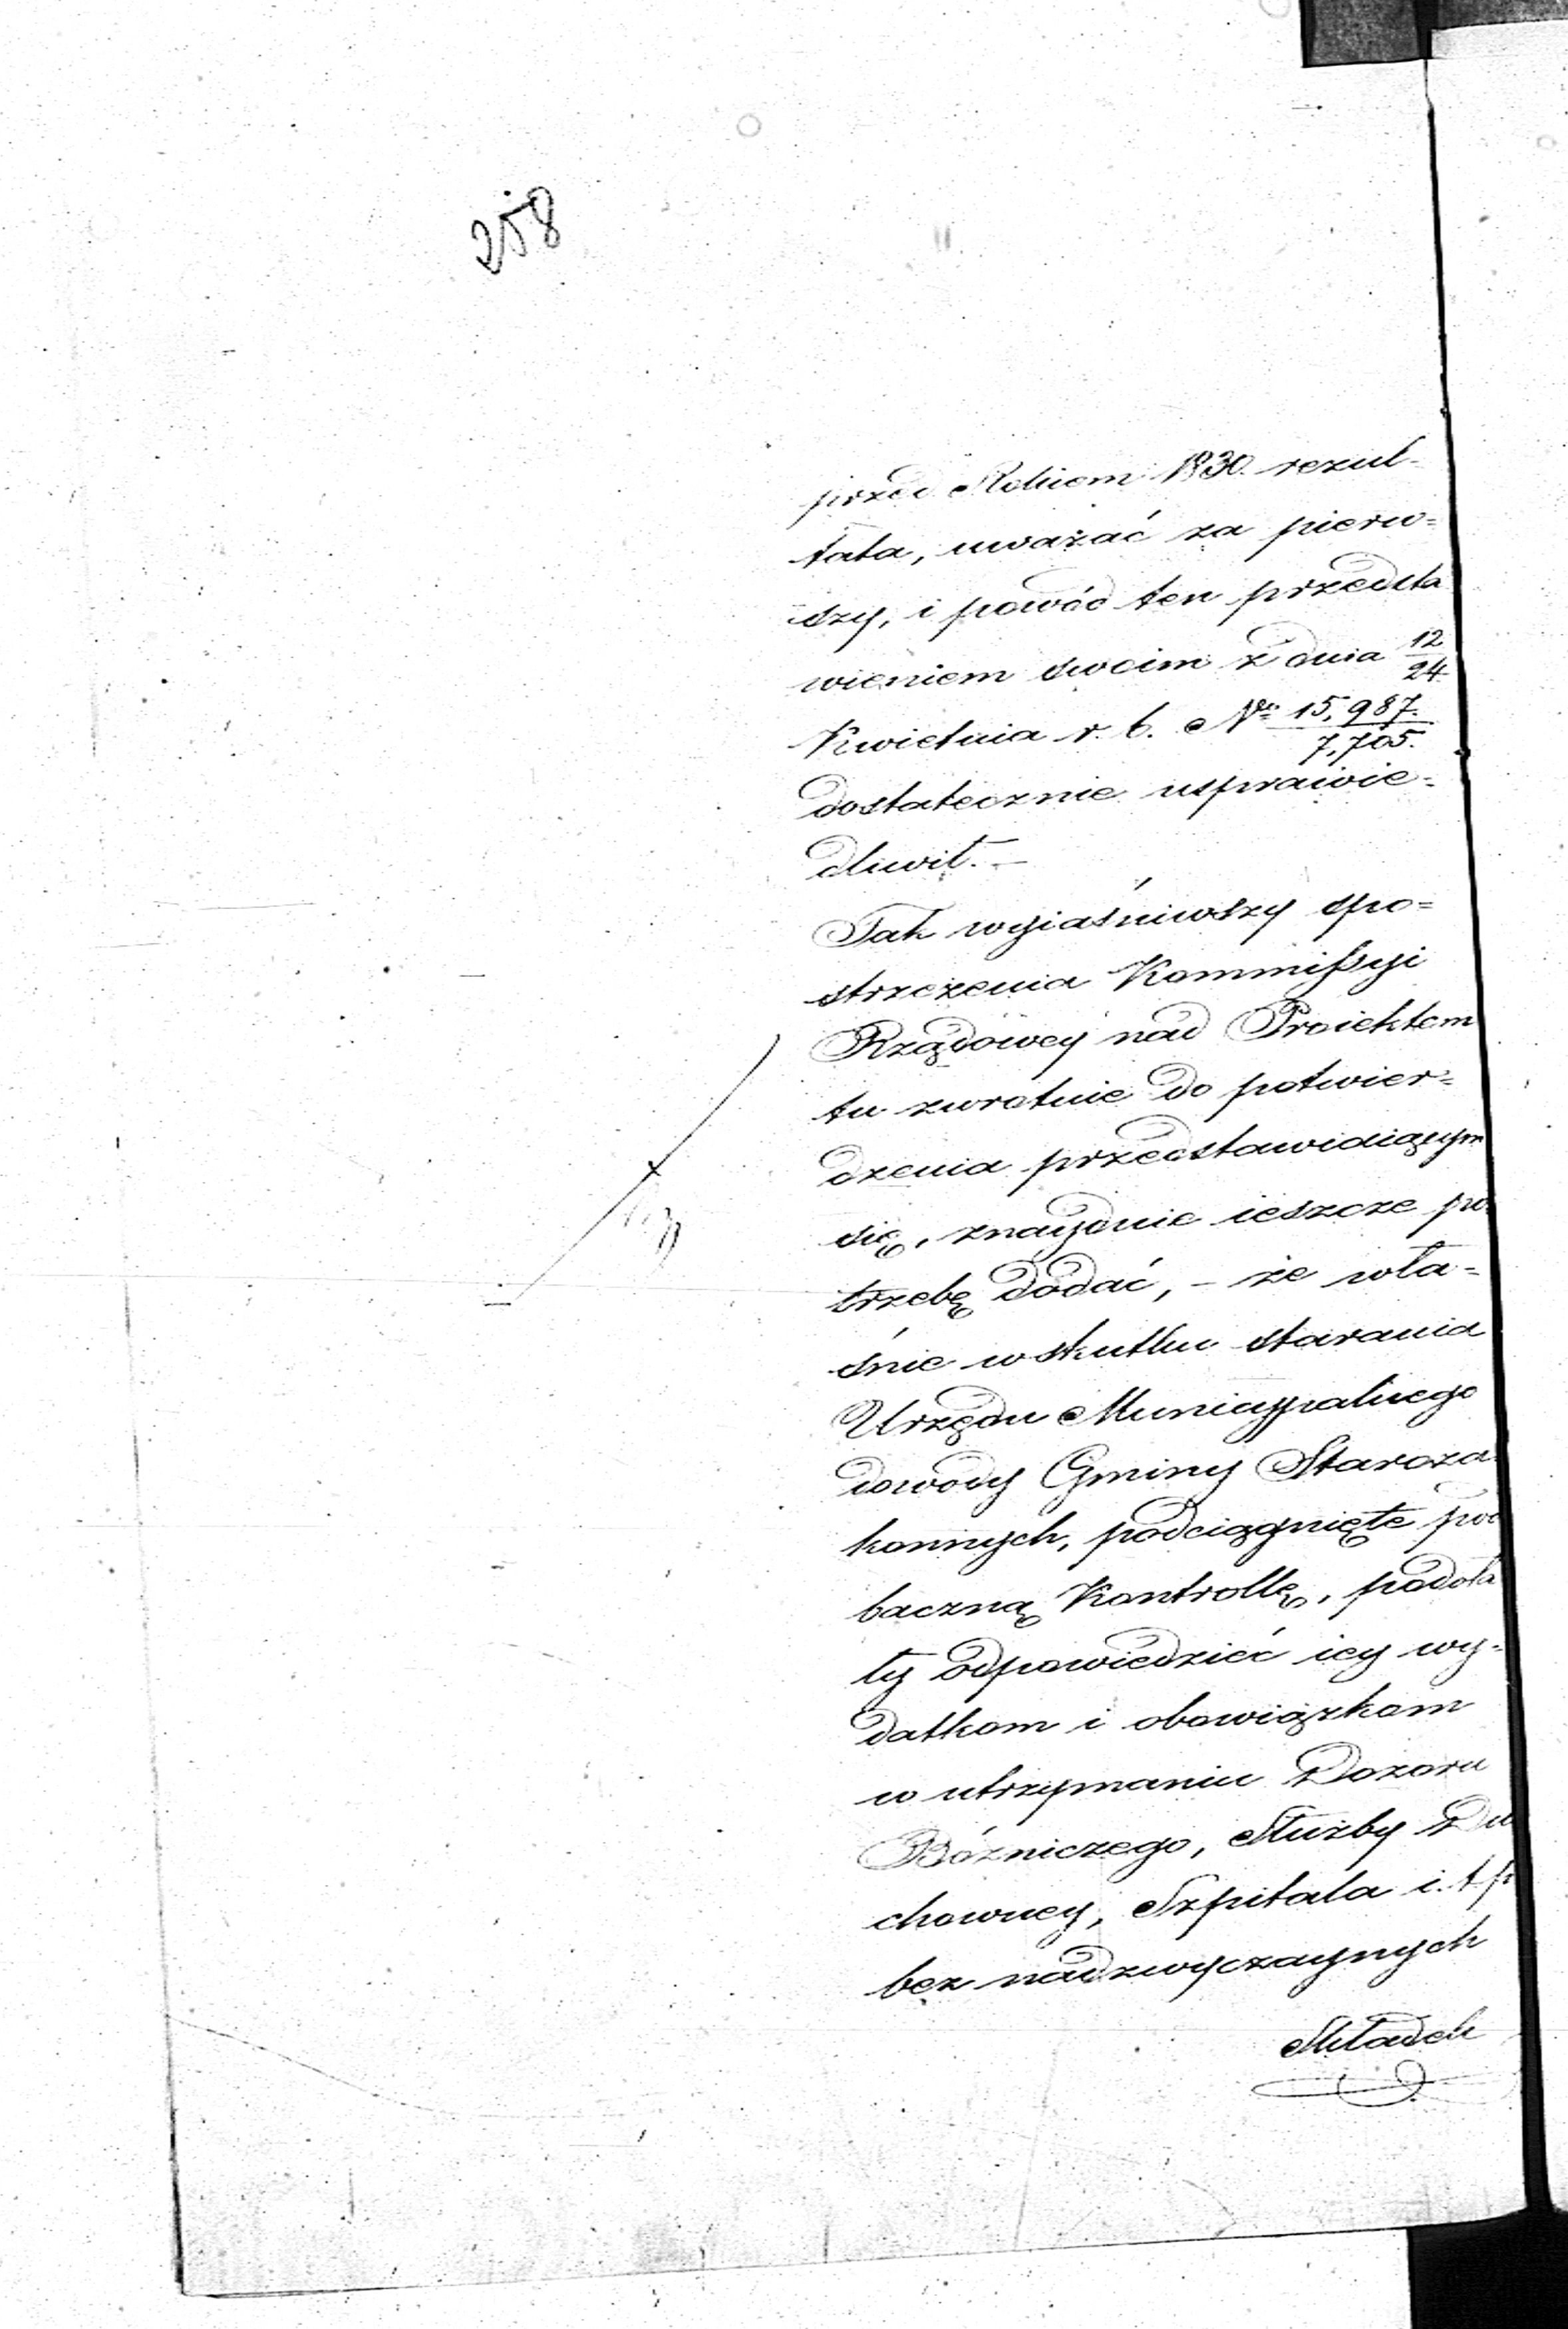 258
przed Rokiem 1830. rezul-
tata, uważać za pierw=
szy, i powód ten przedsta
wieniem swoim z dnia 12/24
Kwietnia r. b. No 15,987./7,705.
dostatecznie usprawie=
dliwił. –
Tak wyiaśniwszy spo=
strzeżenia Kommissyi
Rządowey nad Proiektem
tu zwrotnie do potwier=
dzenia przedstawiaiącym
się, znayduie ieszcze po
trzebę dodać, – że wła=
śnie w skutku starania
Urzędu Municypalnego
dowody Gminy Staroza
konnych, podciągnięte pod
baczną Kontrollę, podoła
ły odpowiedzieć iey wy=
datkom i obowiązkom
w utrzymaniu Dozoru
Bóżniczego, Służby Du
chowney, Szpitala i. t. p
bez nadzwyczaynych
Składek